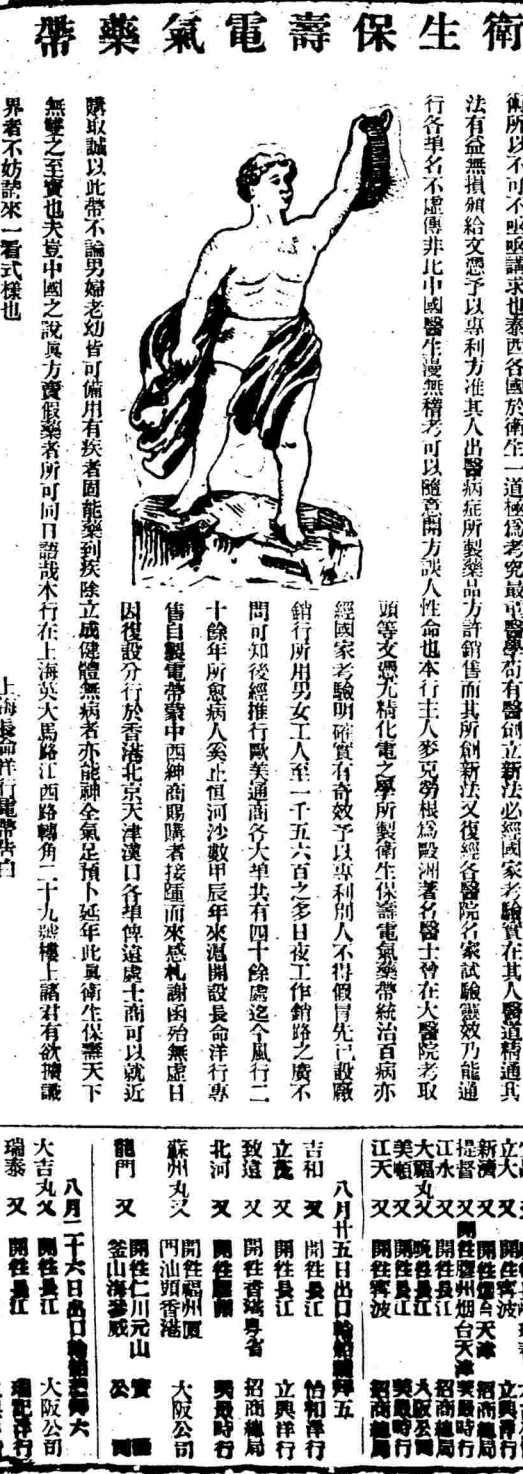 衛生保壽電氣藥帶
術所以不可不亟亟講求也泰西各國於衛生一道極爲考究最重醫學苟有醫創立新法必經國家考驗實在其人醫道精通其
法有益無損頒給文憑予以專利方准其人出醫病症所製藥品方許銷售而其所創新法又復經各醫院名家試驗靈效乃能通
行各埠名不虛傳非比中國醫生漫無稽考可以隨意開方誤人性命也本行主人麥克勞根爲歐洲著名醫士曾在大醫院考取
頭等文憑尤精化電之學所製衛生保壽電氣藥帶統治百病亦
經國家考驗明確實有奇效予以專利別人不得假冒先已設廠
銷行所用男女工人至一千五六百之多日夜工作銷路之廣不
問可知後經推行歐美通商各大埠共有四十餘處迄今風行二
十餘年所愈病人奚止恒河沙數甲辰年來滬開設長命洋行專
售自製電帶蒙中西紳商賜購者接踵而來感札謝函殆無虛日
因復設分行於香港北京天津漢口各埠俾遠處士商可以就近
購取誠以此帶不論男婦老幼皆可備用有疾者固能藥到疾除立成健體無病者亦能神全氣足預卜延年此眞衛生保壽天下
無雙之至寶也夫豈中國之說眞方賣假藥者所可同日語哉本行在上海英大馬路江西路轉角二十九號樓上諸君有欲擴識
界者不妨請來一看式樣也
上海長命洋行電帶告白
立大 又 開往寧波 立興洋行
新濟 又 開往烟台天津 招商總局
提督 又 開往膠州烟台天津 美最時行
江永 又 開往長江 招商總局
大福丸又 晚往長江 大阪公司
美順 又 開往長江 美最時行
江天 又 開往寧波 招商總局
八月廿五日出口輪船禮拜五
吉和 又 開往長江 怡和洋行
立茂 又 開往長江 立興洋行
致遠 又 開往香港粵省 招商總局
北河 又 開往膠州 美最時行
蘇州丸又 開往福州廈門汕頭香港 大阪公司
龍門 又 開往仁川元山釜山海參威 公司
八月二十六日出口輪船禮拜六
大吉丸又 開往長江 大阪公司
瑞泰 又 開往長江 瑞記洋行